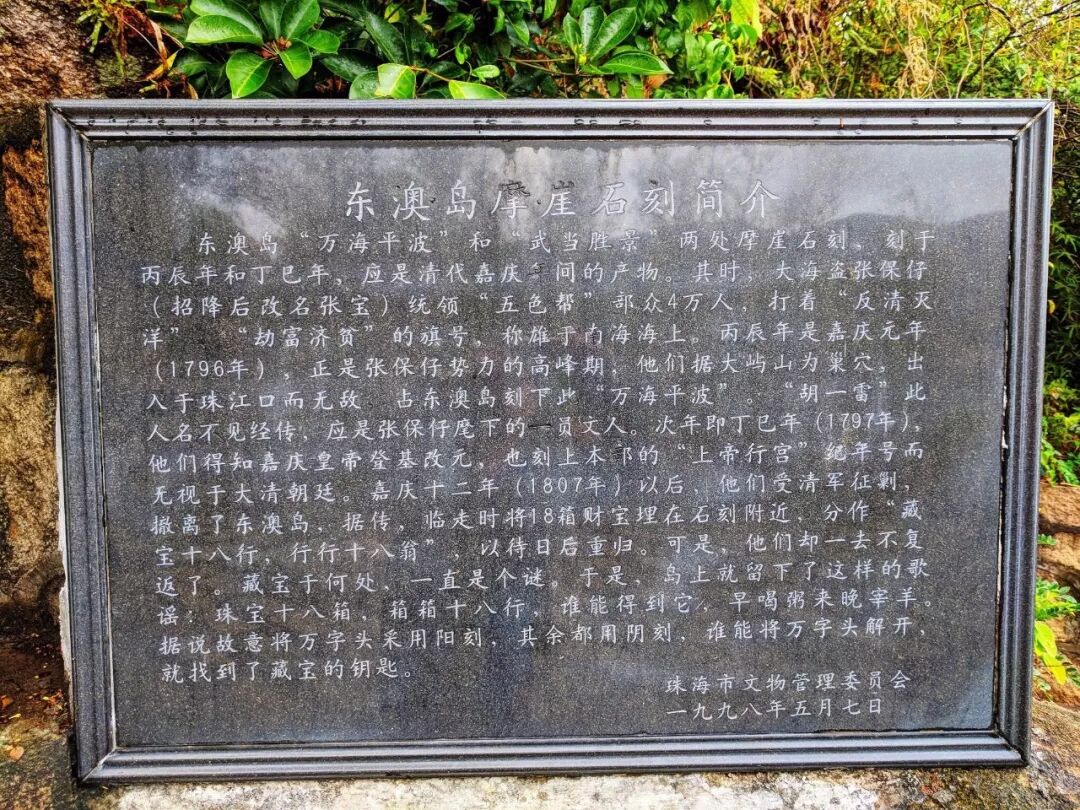 东澳岛摩崖石刻简介
东澳岛“万海平波”和“武当胜景”两处摩崖石刻，刻于
丙辰年和丁巳年，应是清代嘉庆年间的产物。其时，大海盗张保仔
（招降后改名张宝）统领“五色帮”部众4万人，打着“反清灭
洋” “劫富济贫”的旗号，称雄于南海海上。丙辰年是嘉庆元年
（1796年），正是张保仔势力的高峰期，他们据大屿山为巢穴，出
入于珠江口而无敌 占东澳岛刻下此“万海平波”。“胡一雷”此
人名不见经传，应是张保仔麾下的一员文人。次年即丁巳年（1797年），
他们得知嘉庆皇帝登基改元，也刻上本部的“上帝行宫”纪年号而
无视于大清朝廷。嘉庆十二年（1807年）以后，他们受清军征剿，
撤离了东澳岛，据传，临走时将18箱财宝埋在石刻附近，分作“藏
宝十八行，行行十八翁”，以待日后重归。可是，他们却一去不复
返了。藏宝于何处，一直是个谜。于是，岛上就留下了这样的歌
谣：珠宝十八箱，箱箱十八行，谁能得到它，早喝粥来晚宰羊。
据说故意将万字头采用阳刻，其余都用阴刻，谁能将万字头解开，
就找到了藏宝的钥匙。
珠海市文物管理委员会
一九九八年五月七日